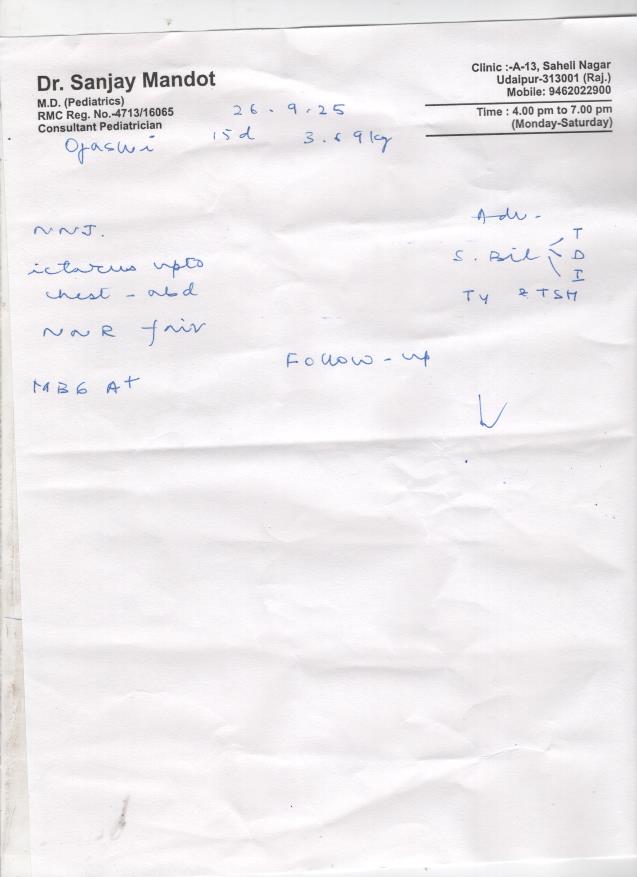 Dr. Sanjay Mandot
M.D. (Pediatrics)
RMC Reg. No.-4713/16065
Consultant Pediatrician
Clinic :-A-13, Saheli Nagar
Udaipur-313001 (Raj.)
Mobile: 9462022900
Time : 4.00 pm to 7.00 pm
(Monday-Saturday)
26.9.25
Ojaswi 15d 3.69kg
NNJ.
ictarus upto
chest - abd
NNR fair
MBG A+
Adv -
S. Bil T
D
I
T4 & TSH
Follow-up